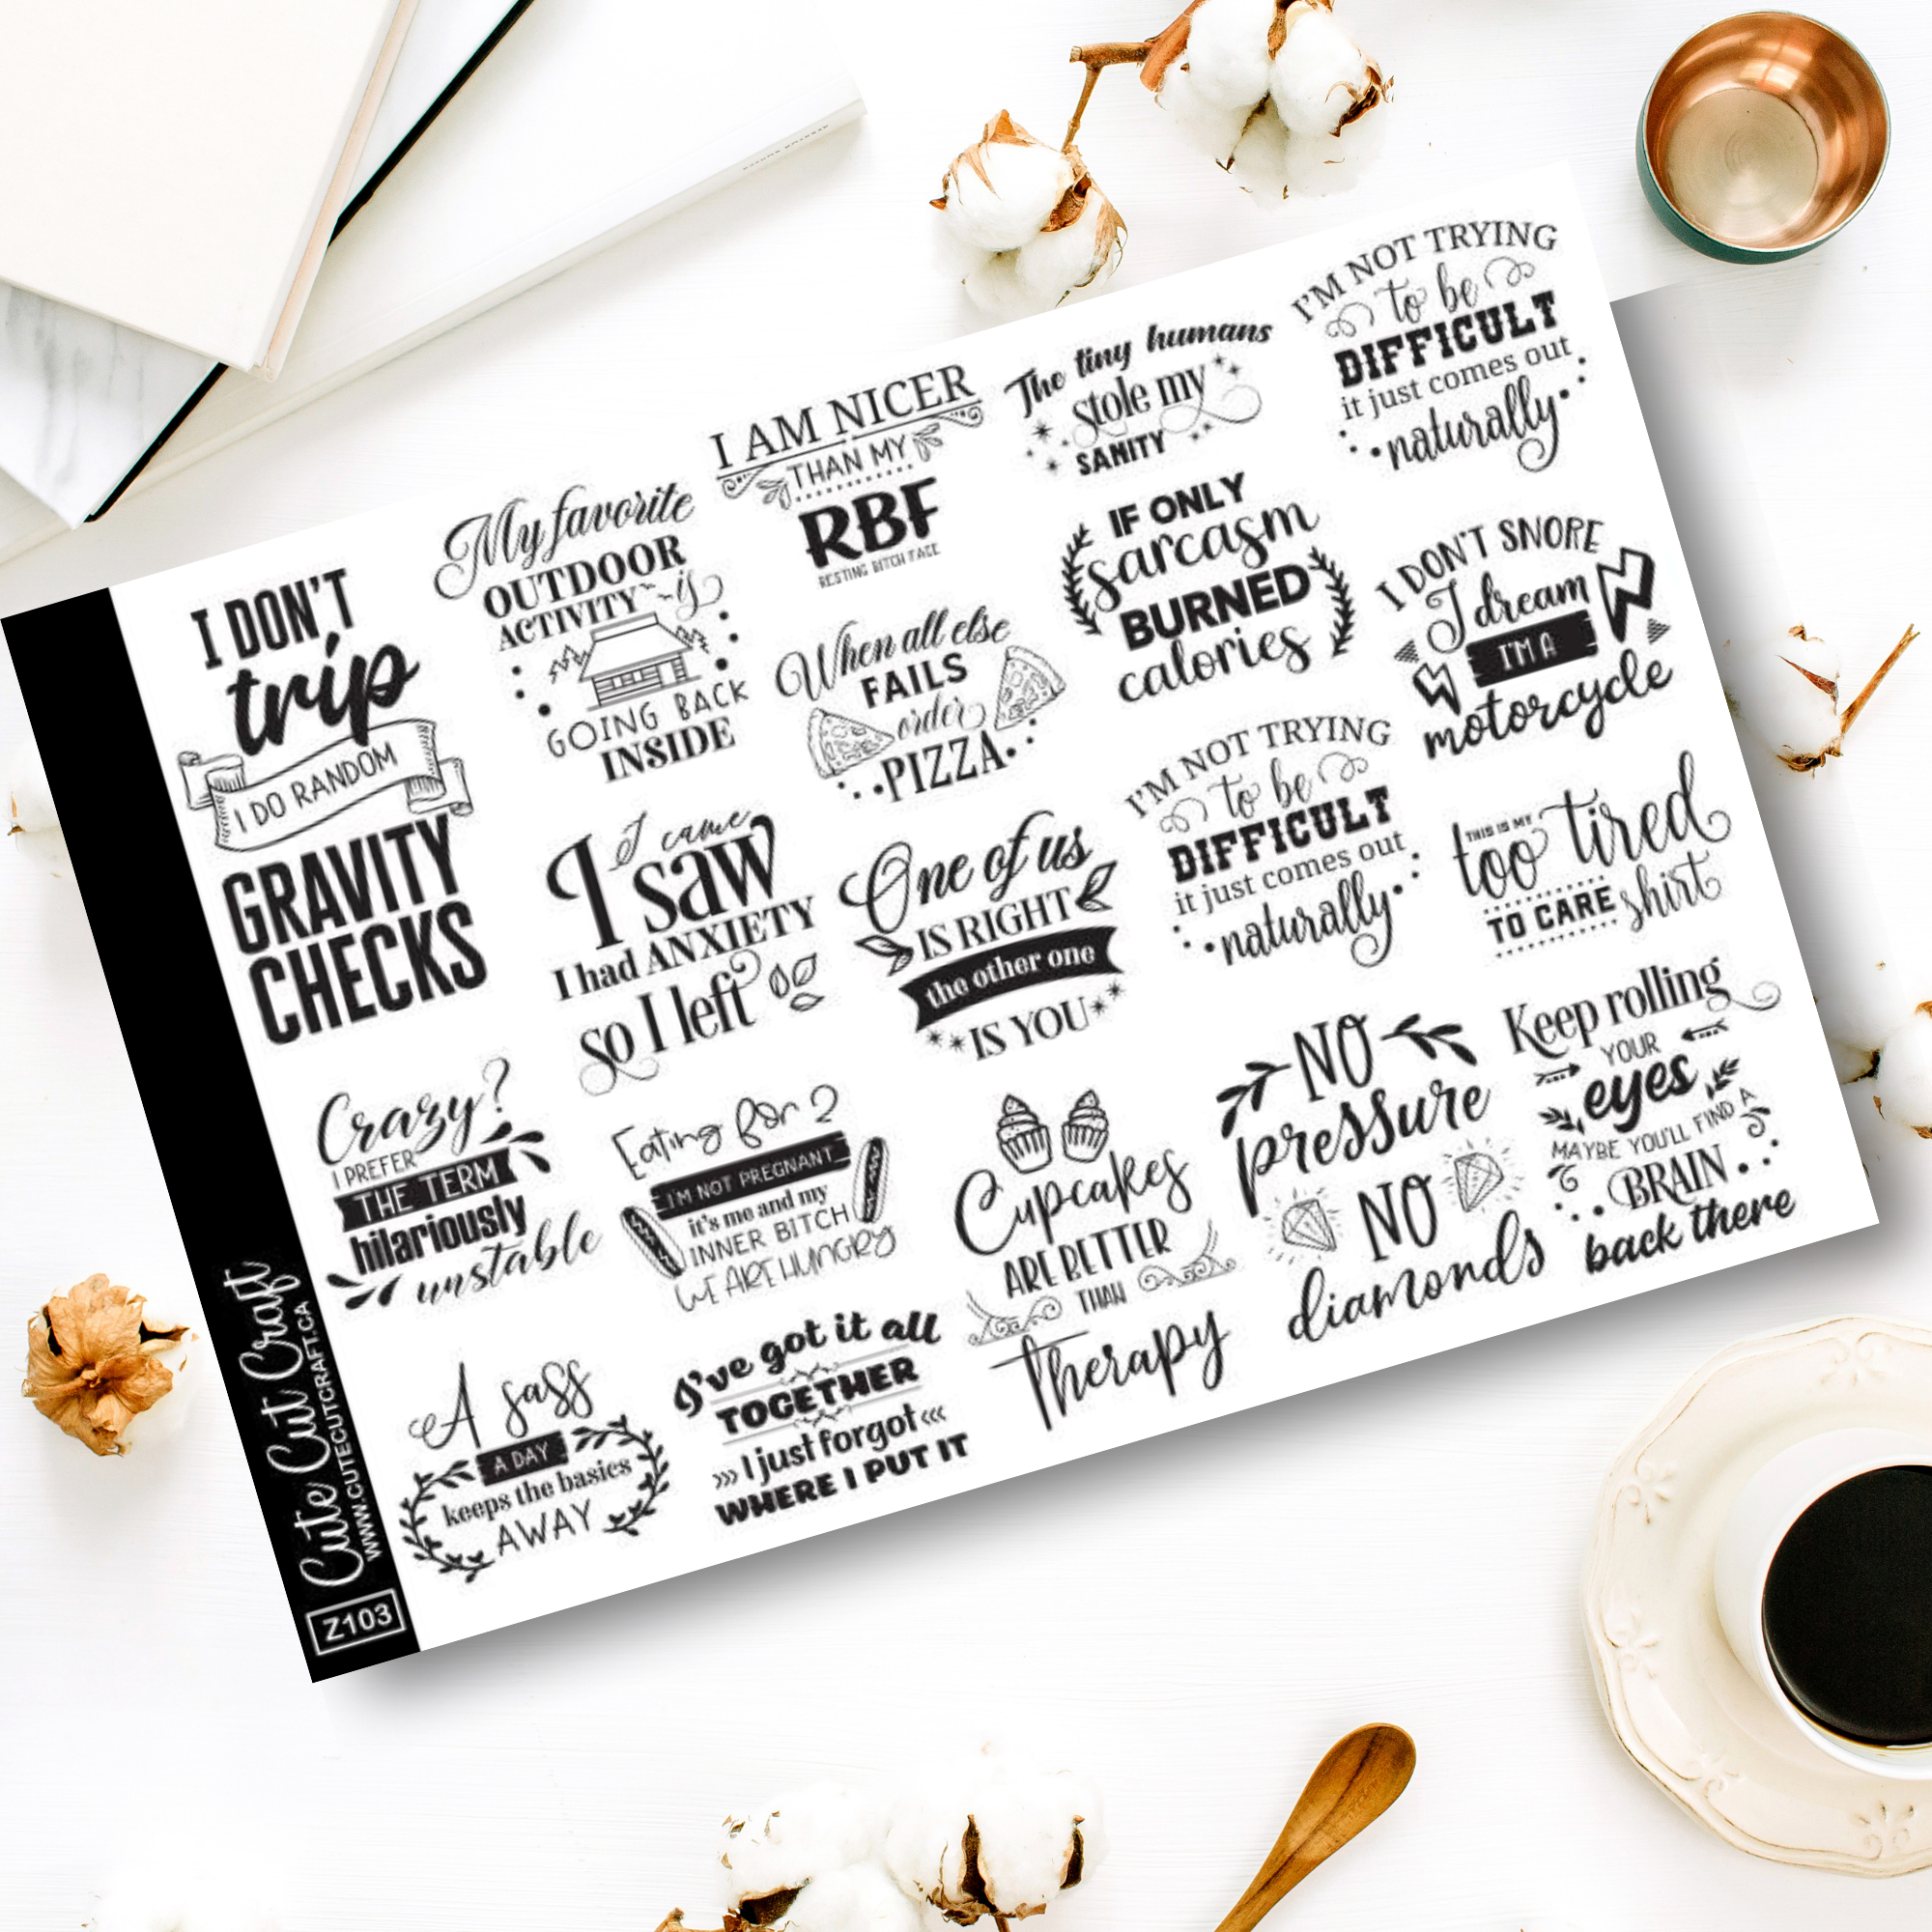 I DON'T
trip
I DO RANDOM
GRAVITY
CHECKS
My favorite
OUTDOOR
ACTIVITY is
GOING BACK
INSIDE
I AM NICER
THAN MY
RBF
RESTING BITCH FACE
The tiny humans
stole my
SANITY
I'M NOT TRYING
to be
DIFFICULT
it just comes out
naturally
When all else
FAILS
order
PIZZA
IF ONLY
sarcasm
BURNED
calories
I DON'T SNORE
I dream
I'M A
motorcycle
I came
I saw
I had ANXIETY
so I left
One of us
IS RIGHT
the other one
IS YOU
I'M NOT TRYING
to be
DIFFICULT
it just comes out
naturally
THIS IS MY
too tired
TO CARE shirt
Crazy?
I PREFER
THE TERM
hilariously
unstable
Eating for 2
I'M NOT PREGNANT
it's me and my
INNER BITCH
WE ARE HUNGRY
Cupcakes
ARE BETTER
THAN
Therapy
NO
pressure
NO
diamonds
Keep rolling
YOUR
eyes
MAYBE YOU'LL FIND A
BRAIN
back there
A sass
A DAY
keeps the basics
AWAY
I've got it all
TOGETHER
I just forgot
WHERE I PUT IT
Cute Cut Craft
WWW.CUTECUTCRAFT.CA
Z103